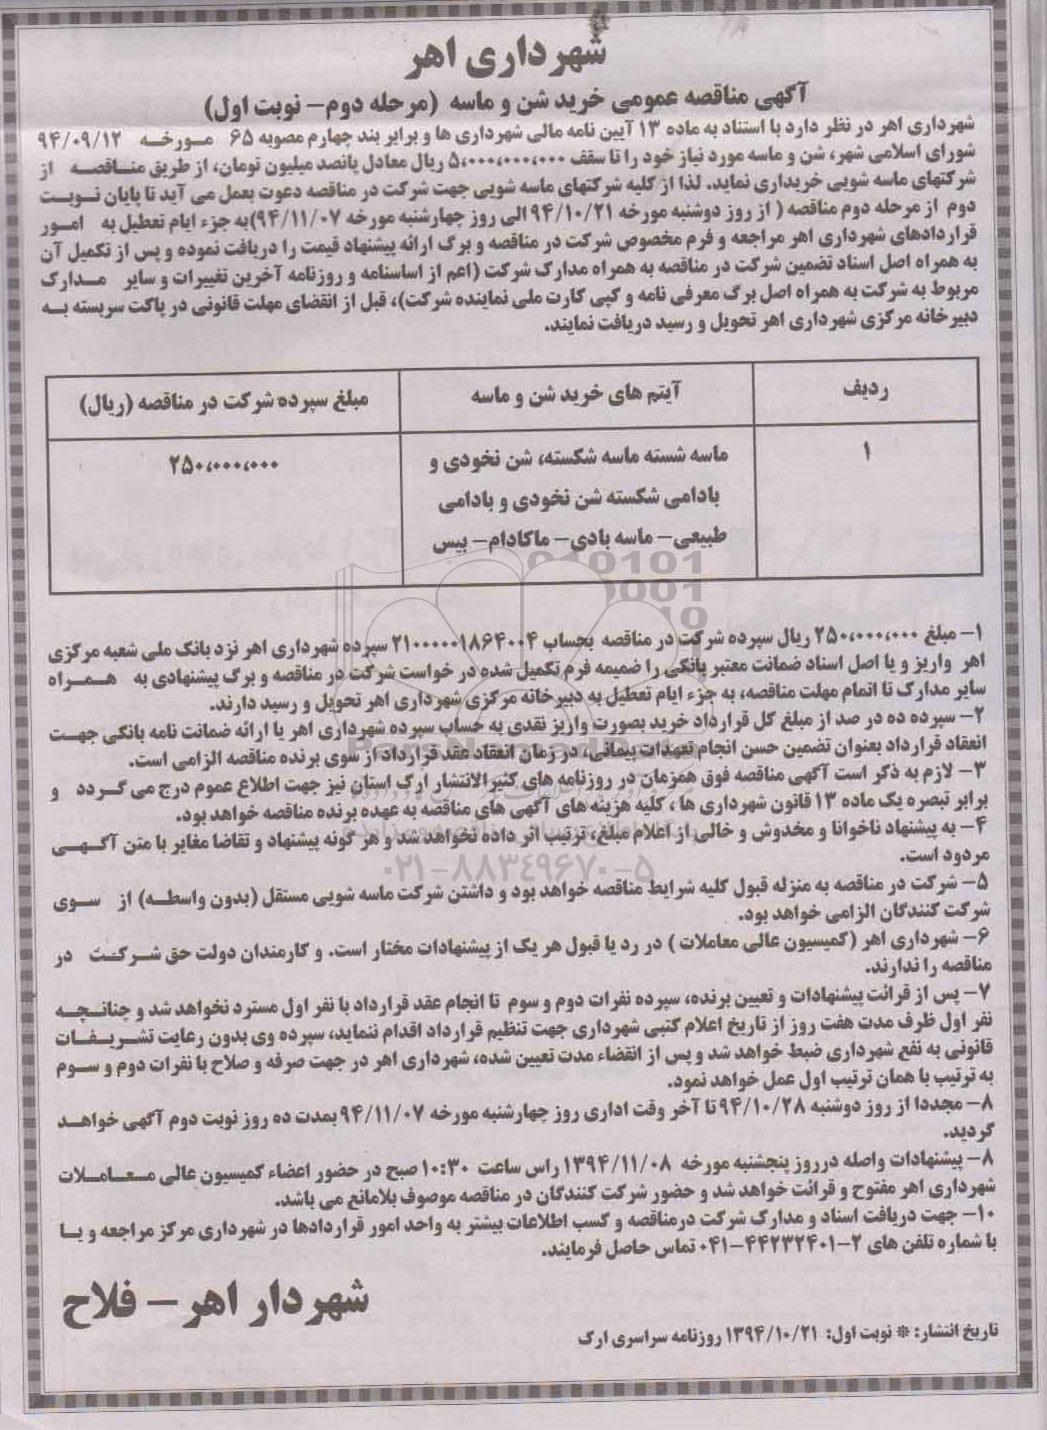 شهرداری اهر
آگهی مناقصه عمومی خرید شن و ماسه (مرحله دوم- نوبت اول)
شهرداری اهر در نظر دارد با استناد به ماده ۱۳ آیین نامه مالی شهرداری ها و برابر بند چهارم مصوبه ۶۵ مورخه ۹۴/۰۹/۱۲
شورای اسلامی شهر، شن و ماسه مورد نیاز خود را تا سقف ۵،۰۰۰،۰۰۰،۰۰۰ ریال معادل پانصد میلیون تومان، از طریق مناقصه از
شرکتهای ماسه شویی خریداری نماید. لذا از کلیه شرکتهای ماسه شویی جهت شرکت در مناقصه دعوت بعمل می آید تا پایان نوبت
دوم از مرحله دوم مناقصه ( از روز دوشنبه مورخه ۹۴/۱۰/۲۱ الی روز چهارشنبه مورخه ۹۴/۱۱/۰۷)به جزء ایام تعطیل به امور
قراردادهای شهرداری اهر مراجعه و فرم مخصوص شرکت در مناقصه و برگ ارائه پیشنهاد قیمت را دریافت نموده و پس از تکمیل آن
به همراه اصل اسناد تضمین شرکت در مناقصه به همراه مدارک شرکت (اعم از اساسنامه و روزنامه آخرین تغییرات و سایر مدارک
مربوط به شرکت به همراه اصل برگ معرفی نامه و کپی کارت ملی نماینده شرکت)، قبل از انقضای مهلت قانونی در پاکت سربسته به
دبیرخانه مرکزی شهرداری اهر تحویل و رسید دریافت نمایند.
ردیف آیتم های خرید شن و ماسه مبلغ سپرده شرکت در مناقصه (ریال)
۱ ماسه شسته ماسه شکسته، شن نخودی و ۲۵۰،۰۰۰،۰۰۰
بادامی شکسته شن نخودی و بادامی
طبیعی- ماسه بادی- ماکادام- بیس
۱- مبلغ ۲۵۰،۰۰۰،۰۰۰ ریال سپرده شرکت در مناقصه بحساب ۲۱۰۰۰۰۰۱۸۶۴۰۰۴ سپرده شهرداری اهر نزد بانک ملی شعبه مرکزی
اهر واریز و یا اصل اسناد ضمانت معتبر بانکی را ضمیمه فرم تکمیل شده در خواست شرکت در مناقصه و برگ پیشنهادی به همراه
سایر مدارک تا اتمام مهلت مناقصه، به جزء ایام تعطیل به دبیرخانه مرکزی شهرداری اهر تحویل و رسید دارند.
۲- سپرده ده در صد از مبلغ کل قرارداد خرید بصورت واریز نقدی به حساب سپرده شهرداری اهر یا ارائه ضمانت نامه بانکی جهت
انعقاد قرارداد بعنوان تضمین حسن انجام تعهدات پیمانی، در زمان انعقاد عقد قرارداد از سوی برنده مناقصه الزامی است.
۳- لازم به ذکر است آگهی مناقصه فوق همزمان در روزنامه های کثیرالانتشار ارک استان نیز جهت اطلاع عموم درج می گردد و
برابر تبصره یک ماده ۱۳ قانون شهرداری ها ، کلیه هزینه های آگهی های مناقصه به عهده برنده مناقصه خواهد بود.
۴- به پیشنهاد ناخوانا و مخدوش و خالی از اعلام مبلغ، ترتیب اثر داده نخواهد شد و هر گونه پیشنهاد و تقاضا مغایر با متن آگهی
مردود است.
۰۲۱-۸۸۳۴۹۶۷۰-۵
۵- شرکت در مناقصه به منزله قبول کلیه شرایط مناقصه خواهد بود و داشتن شرکت ماسه شویی مستقل (بدون واسطه) از سوی
شرکت کنندگان الزامی خواهد بود.
۶- شهرداری اهر (کمیسیون عالی معاملات ) در رد یا قبول هر یک از پیشنهادات مختار است. و کارمندان دولت حق شرکت در
مناقصه را ندارند.
۷- پس از قرائت پیشنهادات و تعیین برنده، سپرده نفرات دوم و سوم تا انجام عقد قرارداد با نفر اول مسترد نخواهد شد و چنانچه
نفر اول ظرف مدت هفت روز از تاریخ اعلام کتبی شهرداری جهت تنظیم قرارداد اقدام ننماید، سپرده وی بدون رعایت تشریفات
قانونی به نفع شهرداری ضبط خواهد شد و پس از انقضاء مدت تعیین شده، شهرداری اهر در جهت صرفه و صلاح با نفرات دوم و سوم
به ترتیب با همان ترتیب اول عمل خواهد نمود.
۸- مجددا از روز دوشنبه ۹۴/۱۰/۲۸ تا آخر وقت اداری روز چهارشنبه مورخه ۹۴/۱۱/۰۷ بمدت ده روز نوبت دوم آگهی خواهد
گردید.
۸- پیشنهادات واصله درروز پنجشنبه مورخه ۱۳۹۴/۱۱/۰۸ راس ساعت ۱۰:۳۰ صبح در حضور اعضاء کمیسیون عالی معاملات
شهرداری اهر مفتوح و قرائت خواهد شد و حضور شرکت کنندگان در مناقصه موصوف بلامانع می باشد.
۱۰- جهت دریافت اسناد و مدارک شرکت درمناقصه و کسب اطلاعات بیشتر به واحد امور قراردادها در شهرداری مرکز مراجعه و یا
با شماره تلفن های ۲-۰۴۱-۴۴۲۳۲۴۰۱ تماس حاصل فرمایند.
شهردار اهر - فلاح
تاریخ انتشار: * نوبت اول: ۱۳۹۴/۱۰/۲۱ روزنامه سراسری ارک